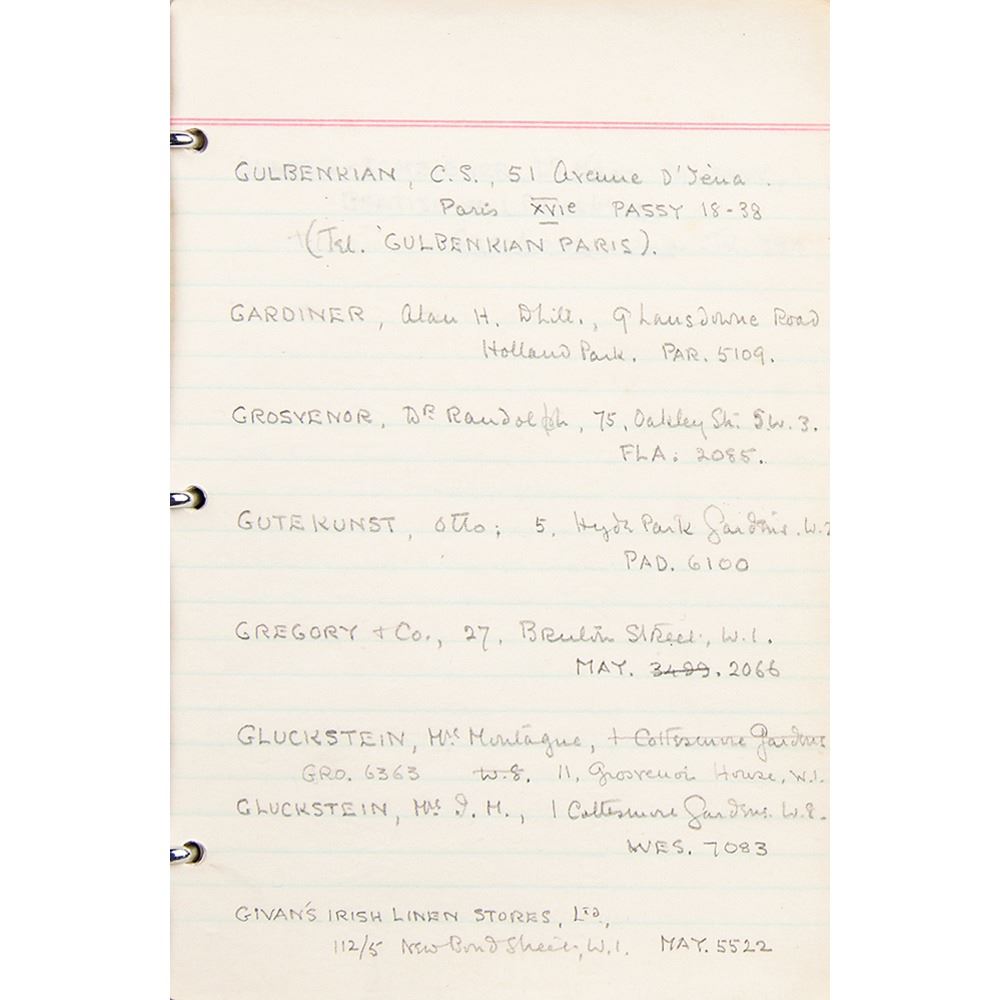 GULBENKIAN, C.S., 51 Avenue D'Iéna.
Paris XVIe PASSY 18-38
(Tel. 'GULBENKIAN PARIS).
GARDINER, Alan H. DLitt., 9 Lansdowne Road
Holland Park. PAR. 5109.
GROSVENOR, DR Randolph, 75, Oakley St. S.W. 3.
FLA: 2085.
GUTEKUNST, Otto; 5, Hyde Park Gardens. W.2
PAD. 6100
GREGORY + Co., 27, Bruton Street, W.1.
MAY. 3499. 2066
GLUCKSTEIN, Mrs Montague, 1 Cottesmore Gardens
GRO. 6363 W.8. 11, Grosvenor House, W.1.
GLUCKSTEIN, Mrs I. M., 1 Cottesmore Gardens. W.8.
WES. 7083
GIVAN'S IRISH LINEN STORES, LTD,
112/5 New Bond Street, W.1. MAY. 5522